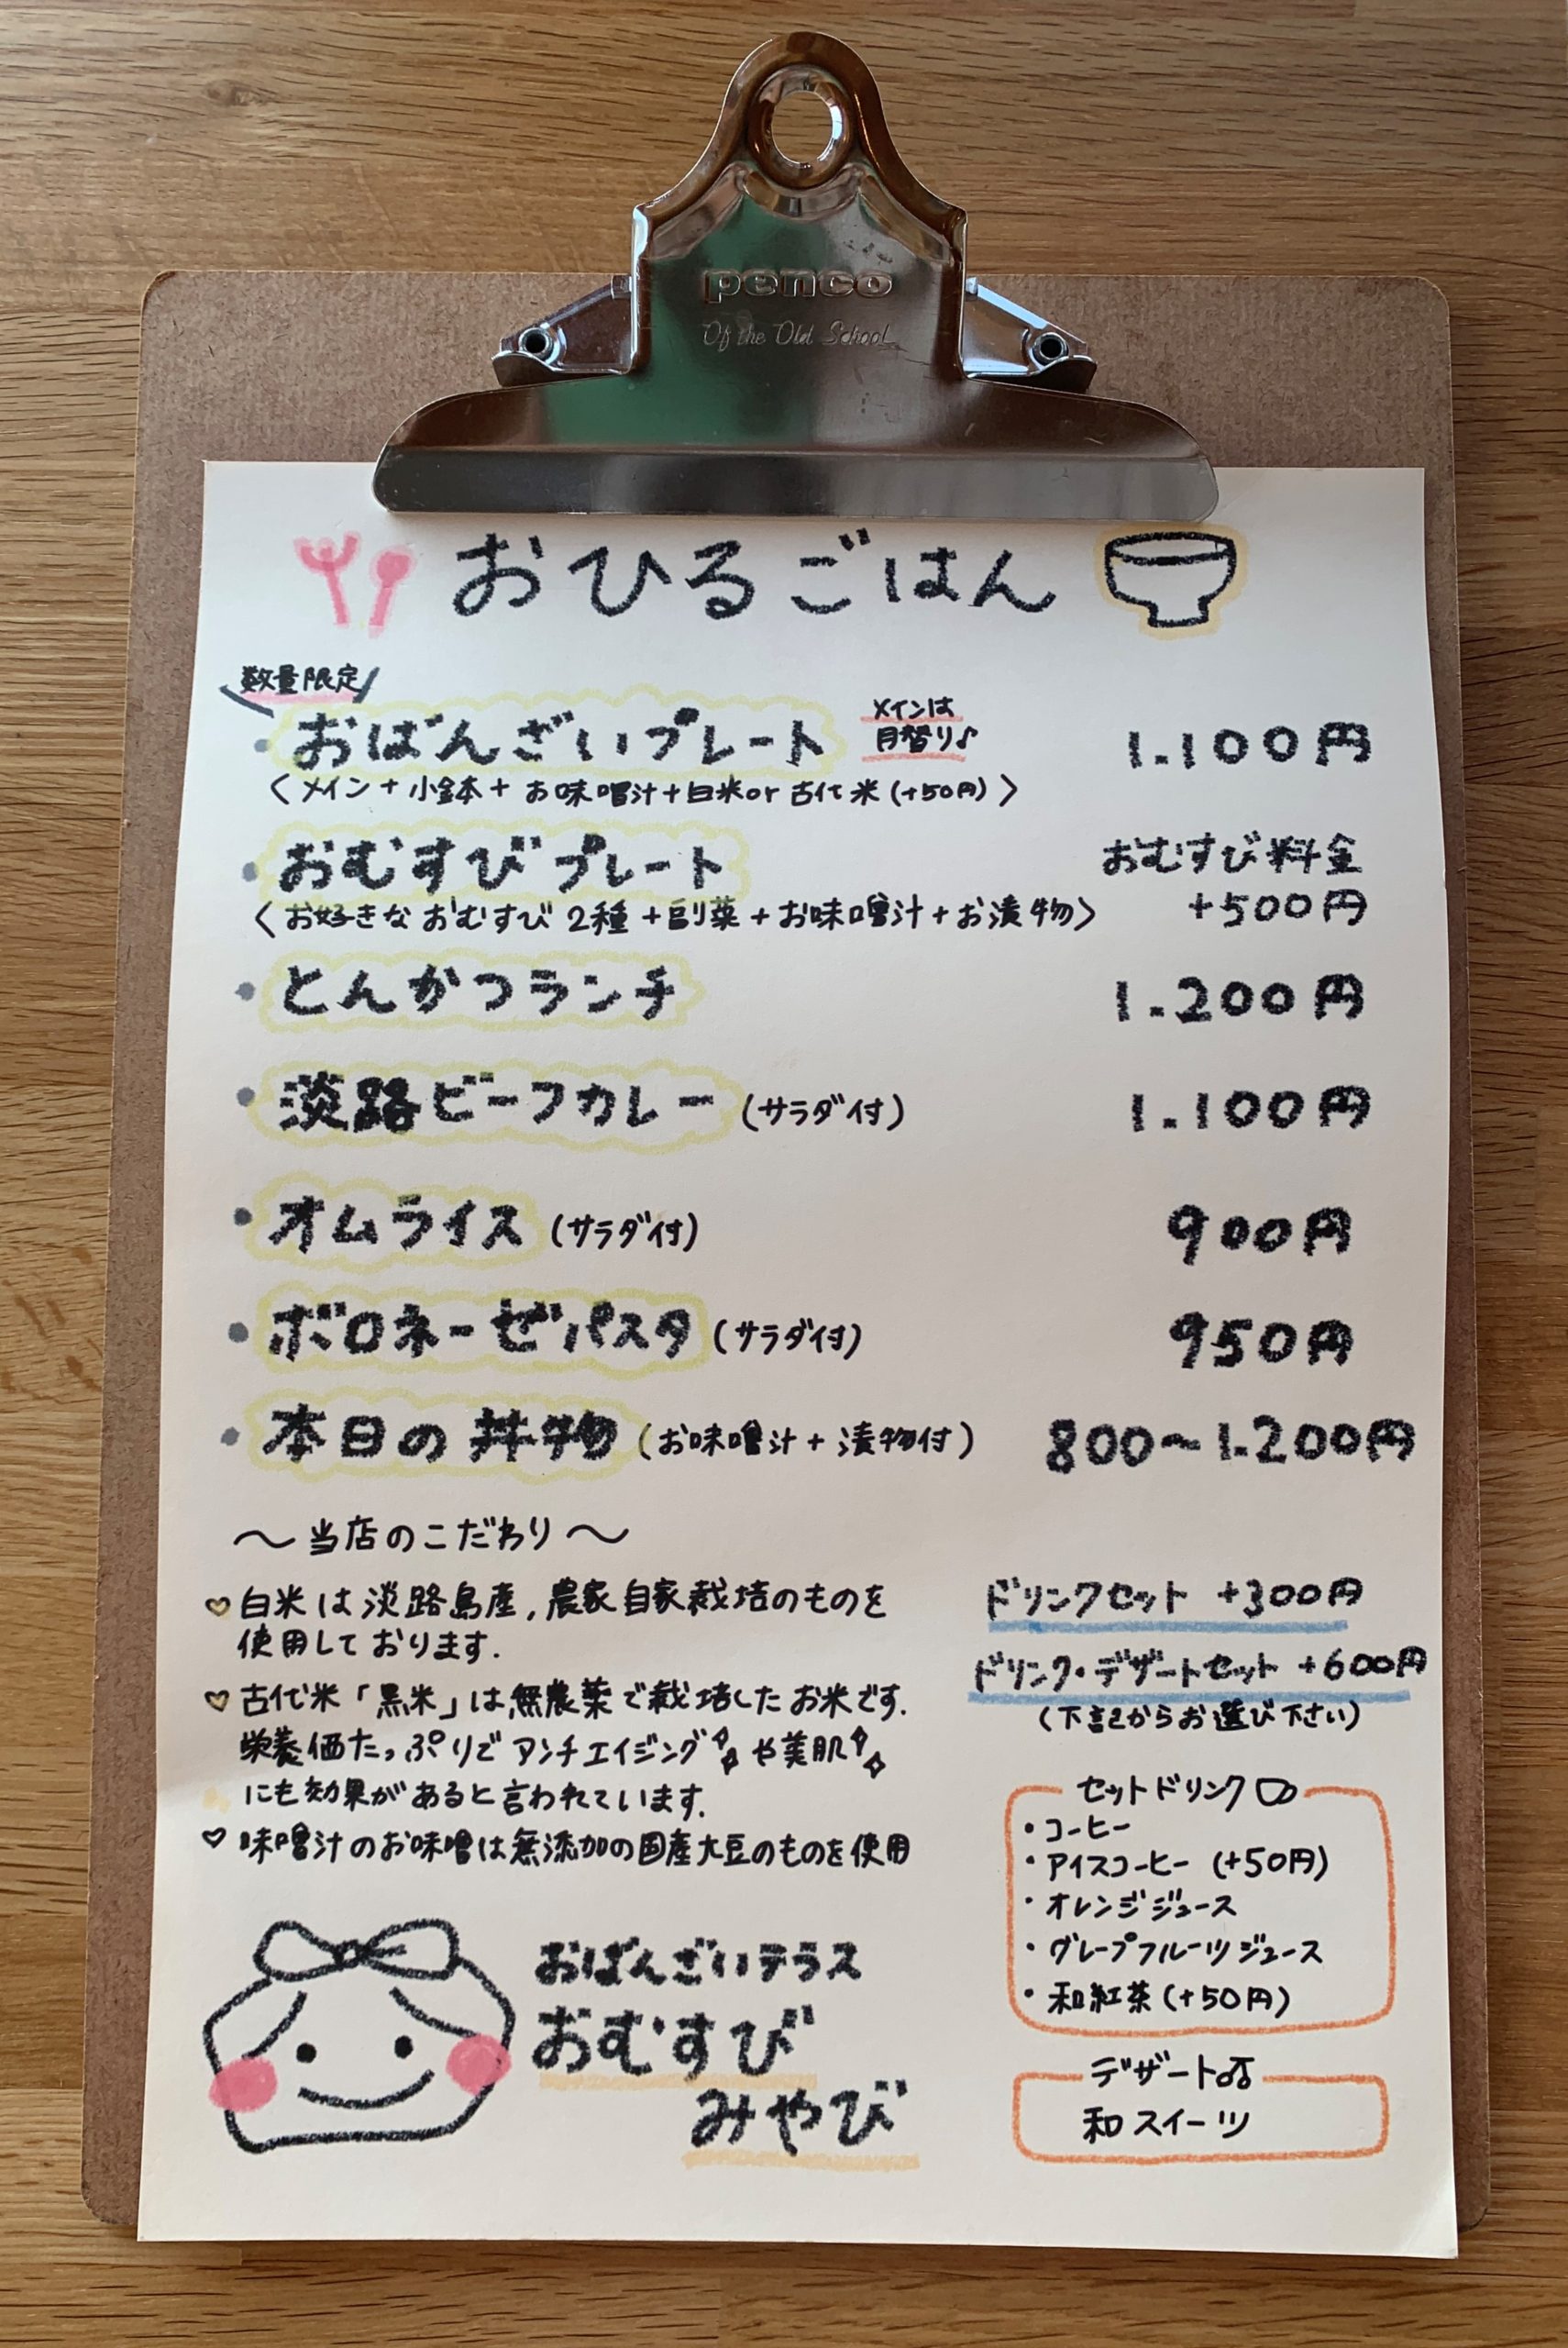 penco
Of the Old School
おひるごはん
数量限定
・おばんざいプレート メインは月替り♪ 1.100円
〈メイン+小鉢+お味噌汁+白米or古代米(+50円)〉
・おむすびプレート おむすび料金
〈お好きなおむすび2種+副菜+お味噌汁+お漬物〉 +500円
・とんかつランチ 1.200円
・淡路ビーフカレー(サラダ付) 1.100円
・オムライス(サラダ付) 900円
・ボロネーゼパスタ(サラダ付) 950円
・本日の丼物(お味噌汁+漬物付) 800〜1.200円
〜当店のこだわり〜
♡白米は淡路島産,農家自家栽培のものを
使用しております.
♡古代米「黒米」は無農薬で栽培したお米です.
栄養価たっぷりでアンチエイジングや美肌
にも効果があると言われています.
♡味噌汁のお味噌は無添加の国産大豆のものを使用
ドリンクセット +300円
ドリンク・デザートセット +600円
(下記からお選び下さい)
セットドリンク
・コーヒー
・アイスコーヒー(+50円)
・オレンジジュース
・グレープフルーツジュース
・和紅茶(+50円)
デザート
和スイーツ
おばんざいテラス
おむすび
みやび